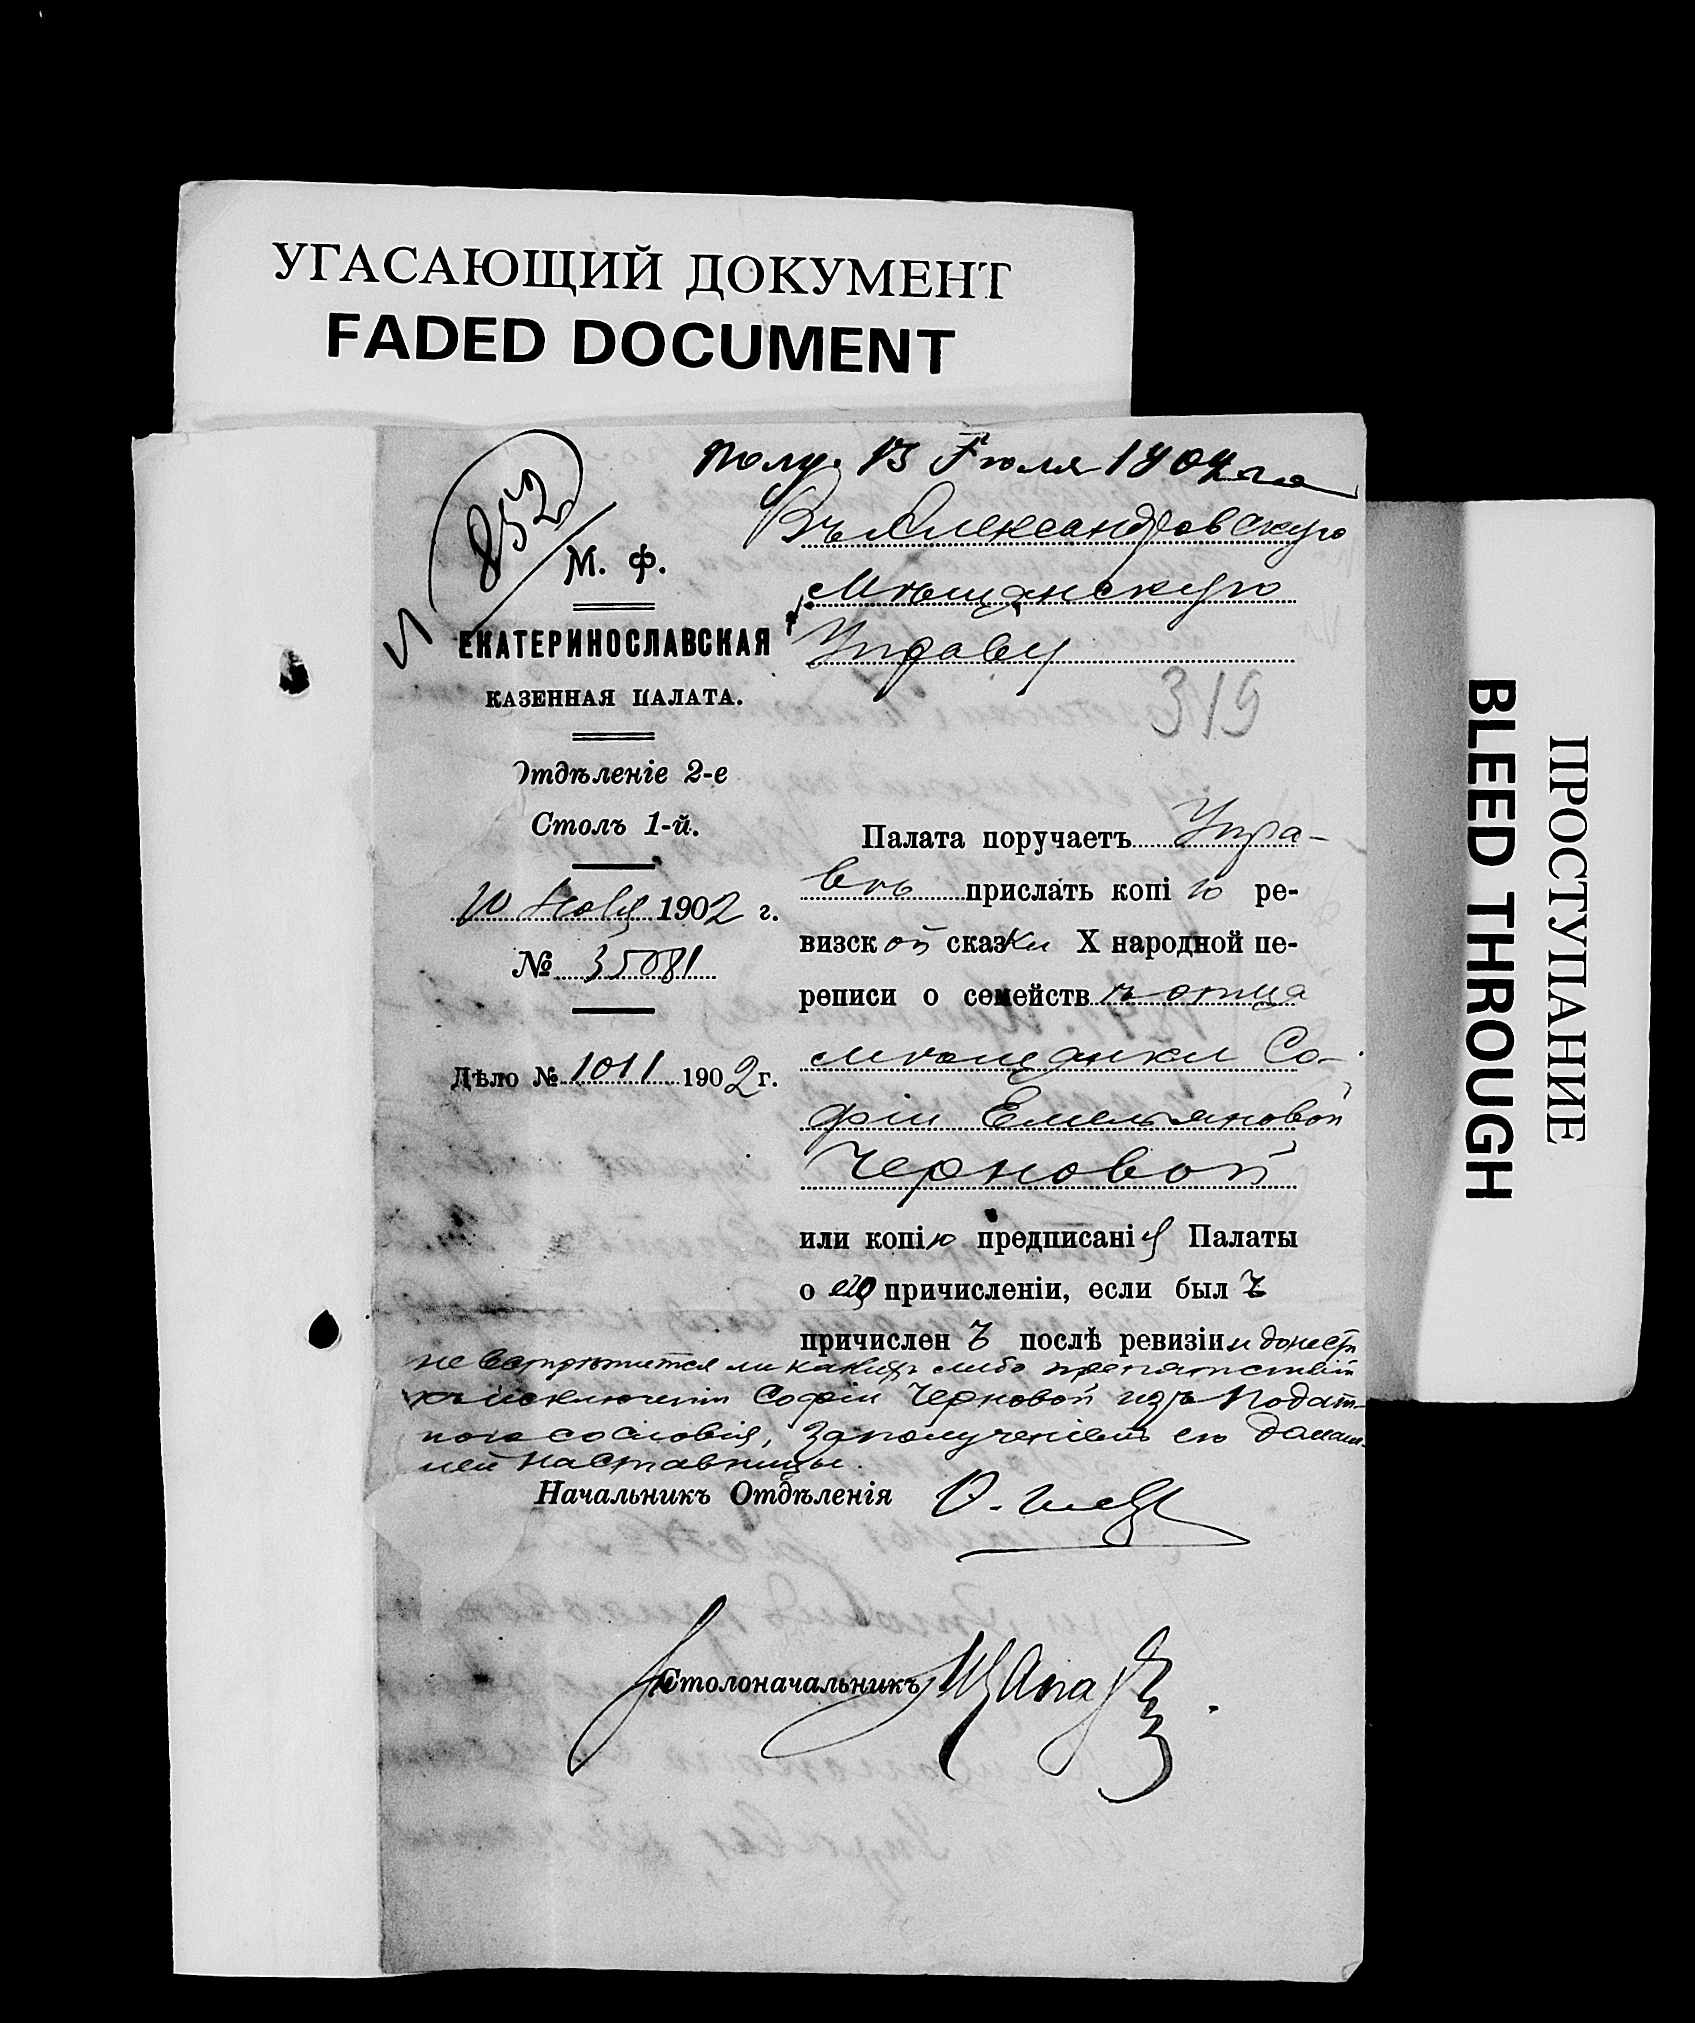 УГАСАЮЩИЙ ДОКУМЕНТ
FADED DOCUMENT
Полу. 13 Іюля 1902 года
852
Въ Александровскую
Мѣщанскую
Управу
319
М. Ф.
ЕКАТЕРИНОСЛАВСКАЯ
КАЗЕННАЯ ПАЛАТА.
Отдѣленіе 2-е
Столъ 1-й.
10 1902 г.
№ 35081
Дѣло № 1011 1902 г.
Палата поручаетъ Упра-
вѣ прислать копію ре-
визской сказки X народной пе-
реписи о семействѣ отца
мѣщанки Со-
фіи Емельяновой
Черновой
или копію предписанія Палаты
о ея причисленіи, если былъ
причисленъ послѣ ревизіи и донести
не встрѣтится ли какихъ либо препятствій
къ исключенію Софіи Черновой изъ подат-
ного сословія, за полученіемъ ею домаш-
ней наставницы.
Начальникъ Отдѣленія
Столоначальникъ
ПРОСТУПАНИЕ
BLEED THROUGH